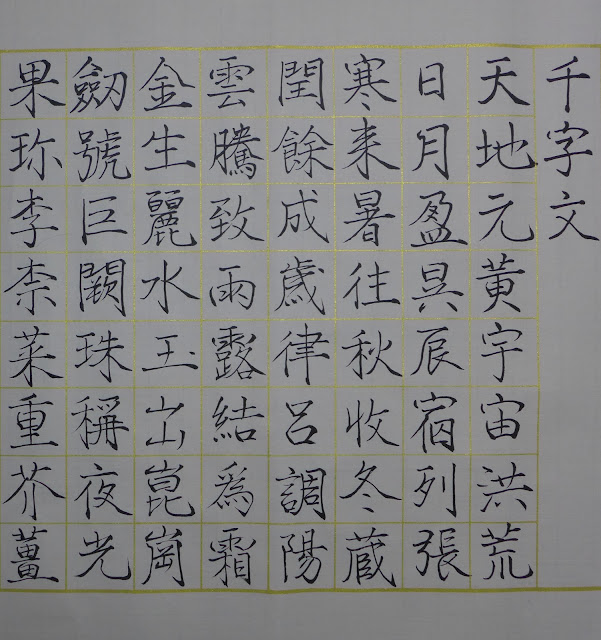 千字文
天地元黄宇宙洪荒
日月盈昃辰宿列張
寒来暑往秋收冬蔵
閏餘成歳律呂調陽
雲騰致雨露結為霜
金生麗水玉出崑崗
劒號巨闕珠稱夜光
果珎李柰菜重芥薑